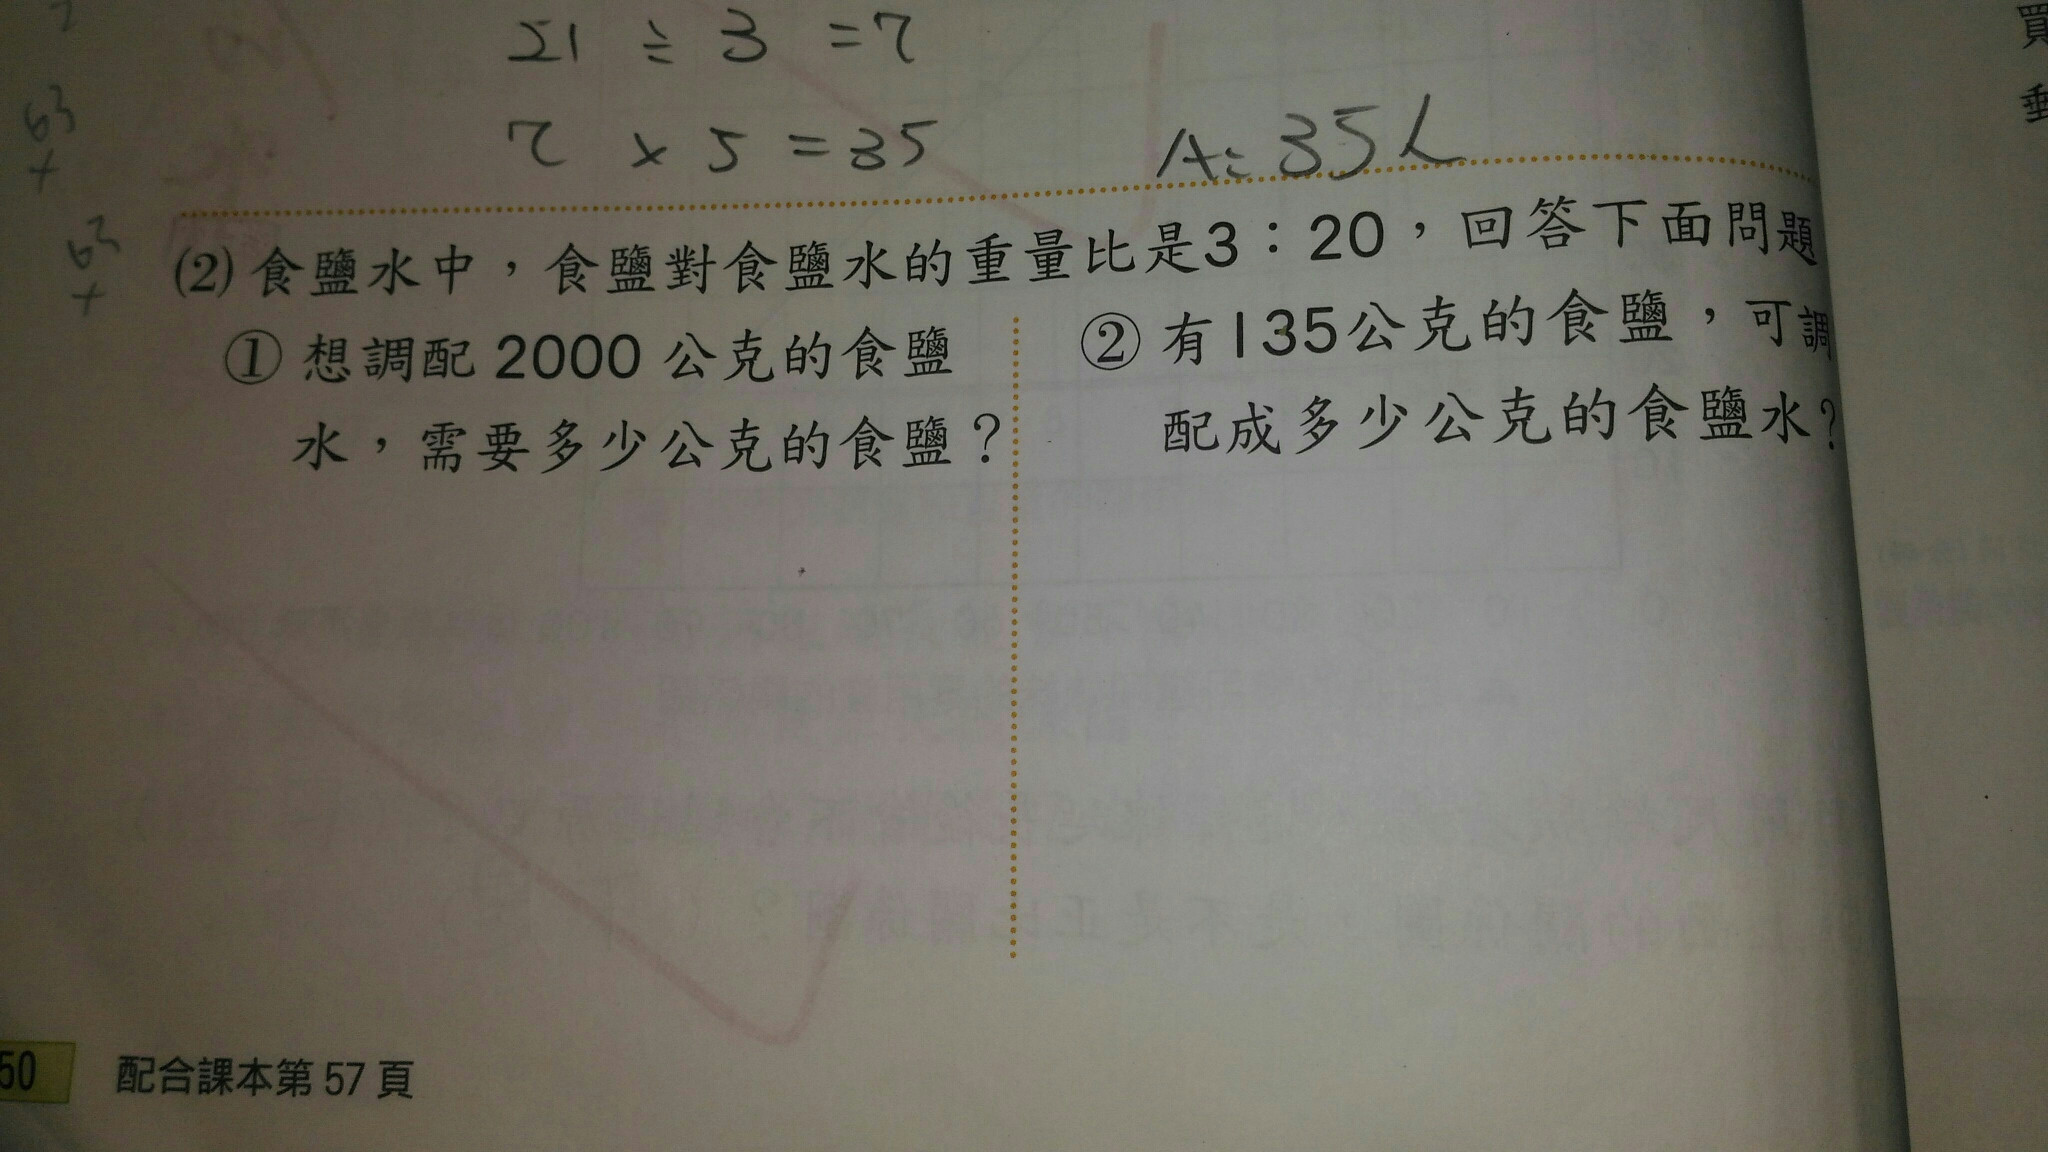 21 ÷ 3 = 7
7 × 5 = 35 A: 35L
63
+
63
+
(2) 食鹽水中，食鹽對食鹽水的重量比是3：20，回答下面問題
① 想調配 2000 公克的食鹽
水，需要多少公克的食鹽？
② 有135公克的食鹽，可調
配成多少公克的食鹽水？
50 配合課本第 57 頁
買